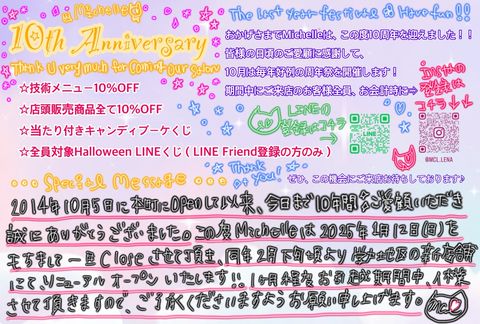 Michelle
10th Anniversary
Thank U very much for coming our salon
☆技術メニュー10%OFF
☆店頭販売商品全て10%OFF
☆当たり付きキャンディブーケくじ
☆全員対象Halloween LINEくじ ( LINE Friend登録の方のみ )
The last year festival Have fun!!
おかげさまでMichelleは、この度10周年を迎えました!!
皆様の日頃のご愛顧に感謝して、
10月は毎年好例の周年祭を開催します!
期間中にご来店のお客様全員、お会計時に⇒
LINEの
登録はコチラ
LINE
インスタの
コチラ↓↓
@MCL.LENA
Thank you!
ぜひ、この機会にご来店お待ちしております♪
Special Message
2014年10月5日に本町にOpenして以来、今日まで10年間ご愛顧いただき
誠にありがとうございました。この度Michelleは2025年1月12日(日)を
もちまして一旦Closeさせて頂き、同年2月下旬頃より 地区の新店舗
にて、リニューアルオープンいたします!! 1ヶ月程お引越し期間中、休業
させて頂きますので、ご了承くださいますようお願い申し上げます。